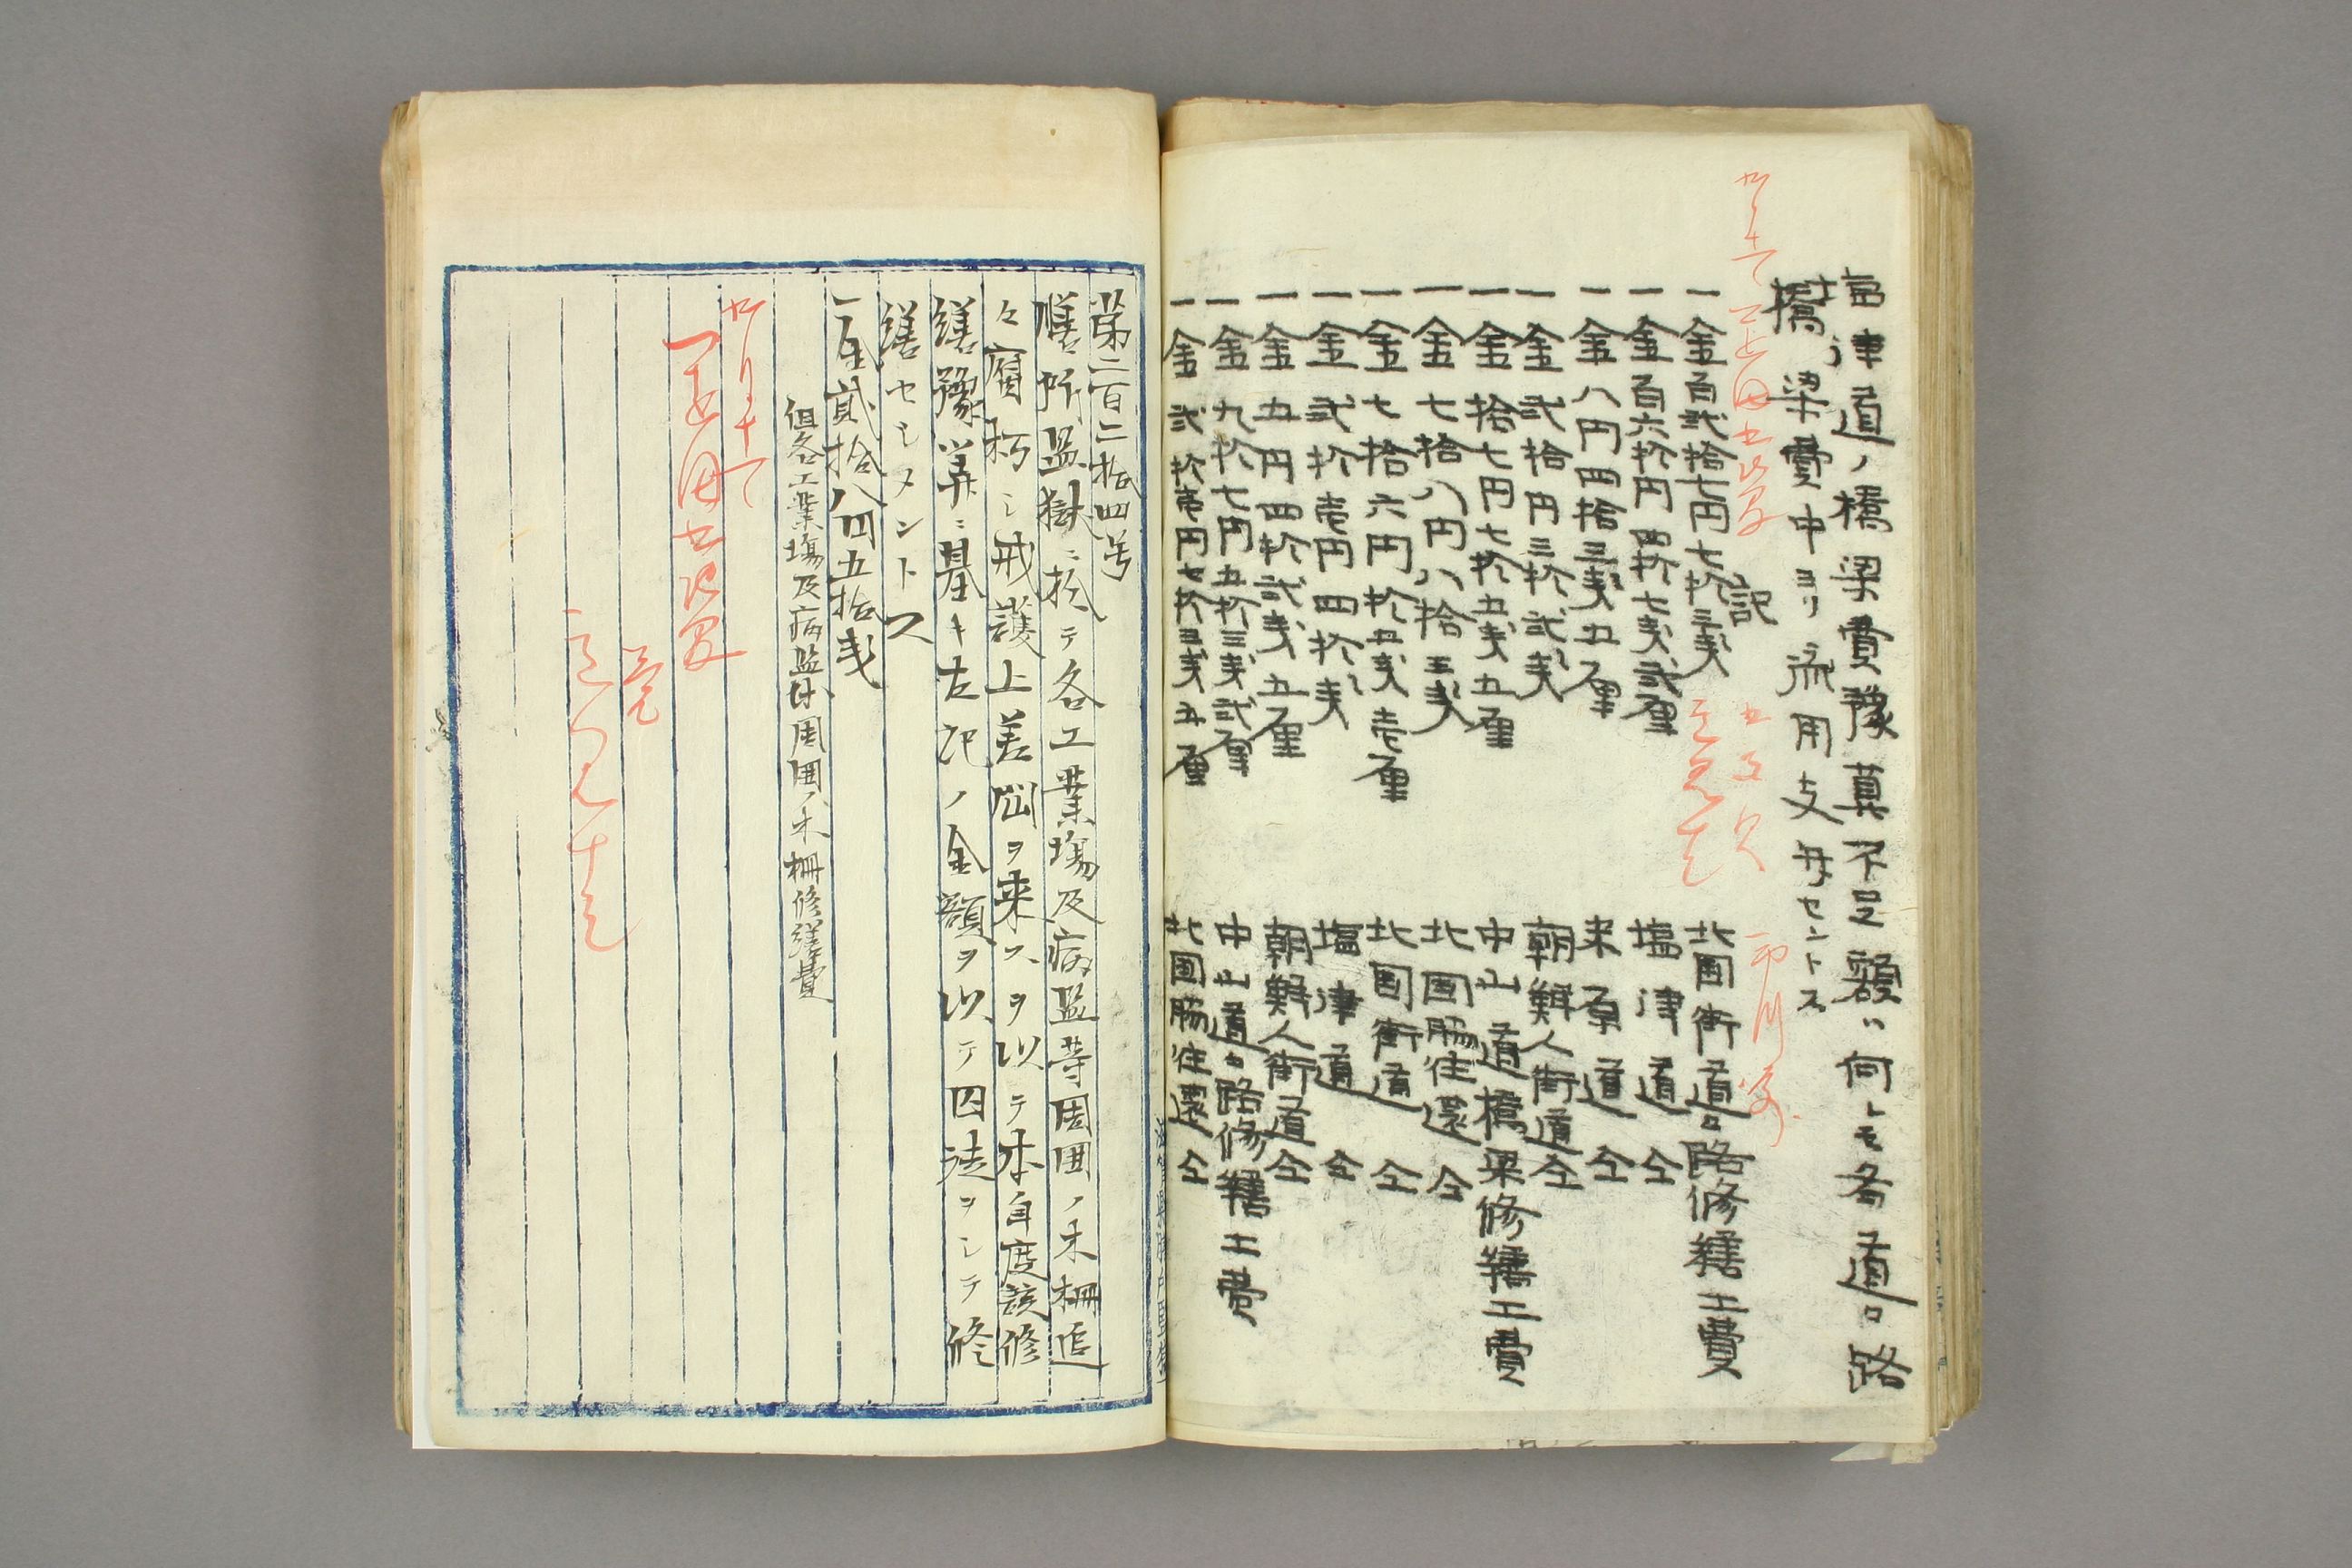 塩津道ノ橋梁費豫算不足額ハ何レモ各道路
橋梁費中ヨリ流用支弁セントス
記
一金百弐拾七円七拾三戔 北国街道道路修繕工費
一金百六拾円四拾七戔弐厘 塩津道仝
一金八円四拾三戔五厘 来原道仝
一金弐拾円三拾弐戔 朝鮮人街道仝
一金拾七円七拾五戔五厘 中山道橋梁修繕工費
一金七拾八円八拾三戔 北国脇往還仝
一金七拾六円拾五戔壱厘 北国街道仝
一金弐拾壱円四拾戔 塩津道仝
一金五円四拾弐戔五厘 朝鮮人街道仝
一金九拾七円五拾三戔弐厘 中山道道路修繕工費
一金弐拾壱円七拾三戔五厘 北国脇往還仝
第二百二拾四号
膳所監獄ニ於テ各工業場及病監等周囲ノ木柵追
々腐朽シ戒護上差閊ヲ来スヲ以テ本年度該修
繕豫算ニ基キ左記ノ金額ヲ以テ囚徒ヲシテ修
繕セシメントス
一金貳拾八円五拾戔
但各工業場及病監外周囲ノ木柵修繕費